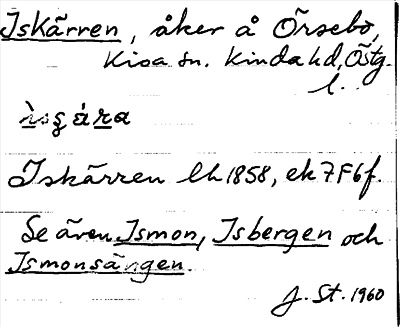 Iskärren, åker å Örsebo,
Kisa sn. Kinda hd, Östg.
l.
Iskärren lh 1858, ek 7F6f.
Se även Ismon, Isbergen och
Ismonsängen.
J. St. 1960